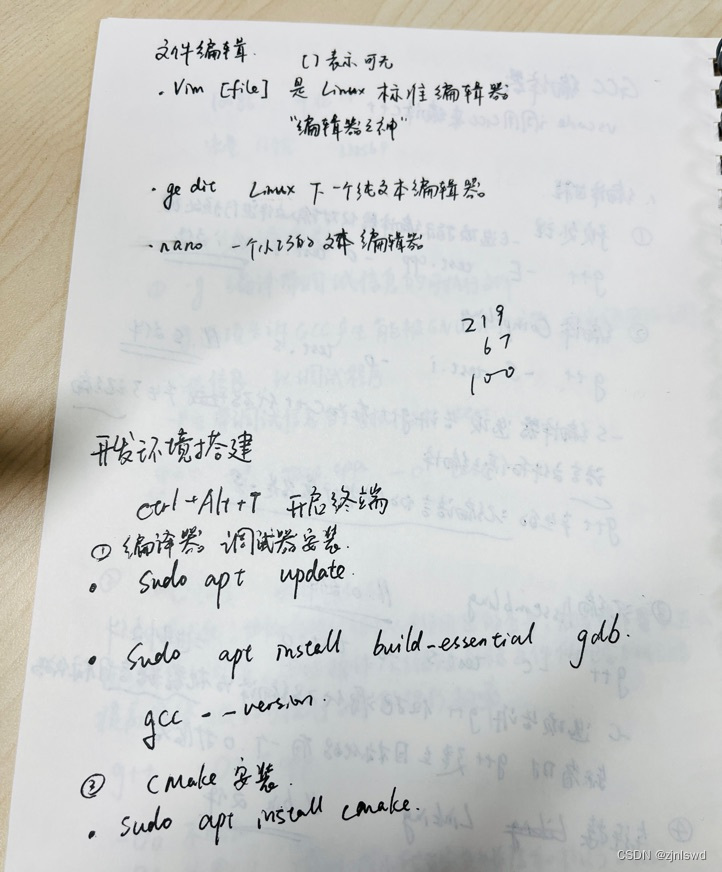 文件编辑. [ ] 表示可无
· Vim [file] 是 Linux 标准编辑器
"编辑器之神"
· gedit Linux 下一个纯文本编辑器
· nano 一个小巧的文本编辑器
219
67
100
开发环境搭建
ctrl+Alt+T 开启终端
① 编译器, 调试器安装.
· sudo apt update.
· sudo apt install build-essential gdb.
gcc --version.
② cmake 安装.
· sudo apt install cmake.
CSDN @zjnlswd